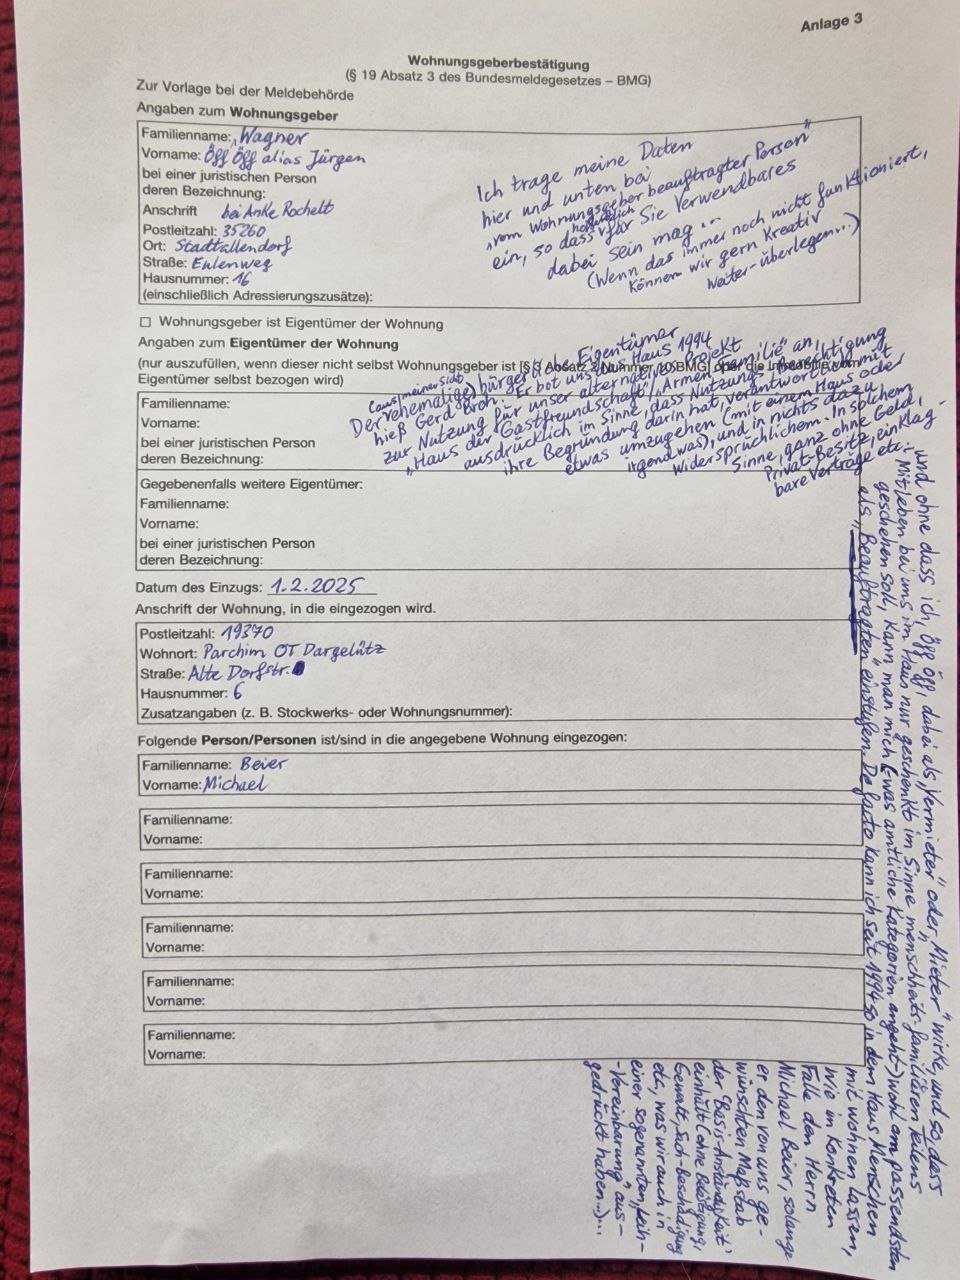 Anlage 3
Wohnungsgeberbestätigung
(§ 19 Absatz 3 des Bundesmeldegesetzes – BMG)
Zur Vorlage bei der Meldebehörde
Angaben zum Wohnungsgeber
Familienname: Wagner
Vorname: Öff Öff alias Jürgen
bei einer juristischen Person
deren Bezeichnung:
Anschrift bei Anke Rochelt
Postleitzahl: 35260
Ort: Stadtallendorf
Straße: Eulenweg
Hausnummer: 16
(einschließlich Adressierungszusätze):
Ich trage meine Daten
hier und unten bei
"vom Wohnungsgeber beauftragter Person"
ein, so dass hoffentlich für Sie Verwendbares
dabei sein mag...
(Wenn das immer noch nicht funktioniert,
können wir gern kreativ
weiter-überlegen...)
☐ Wohnungsgeber ist Eigentümer der Wohnung
Angaben zum Eigentümer der Wohnung
(nur auszufüllen, wenn dieser nicht selbst Wohnungsgeber ist
Eigentümer selbst bezogen wird)
Familienname:
Vorname:
bei einer juristischen Person
deren Bezeichnung:
(aus meiner Sicht
Der ehemalige) bürgerliche Eigentümer
hieß Gerd Bron. Er bot uns das Haus 1994
zur Nutzung für unser alternatives Projekt
"Haus der Gastfreundschaft"/"Armen-Familie" an,
ausdrücklich im Sinne, dass Nutzungs-Berechtigung
ihre Begründung darin hat, verantwortlich mit
etwas umzugehen (mit einem Haus oder
irgendwas), und in nichts dazu
widersprüchlichem. In solchem
Sinne, ganz ohne Geld,
Privat-Besitz, einklag-
bare Verträge etc.
Gegebenenfalls weitere Eigentümer:
Familienname:
Vorname:
bei einer juristischen Person
deren Bezeichnung:
und ohne dass ich, Öff Öff, dabei als "Vermieter" oder "Mieter" wirke, und so, dass
Mitleben bei uns im Haus nur geschenkt im Sinne menschheits-familiären Teilens
geschehen soll, kann man mich (was amtliche Kategorien angeht-) wohl am passendsten
als "Beauftragten" einstufen. De facto kann ich seit 1994 so in dem Haus Menschen
mitwohnen lassen,
wie im konkreten
Falle den Herrn
Michael Beier, solange
er den von uns ge-
wünschten Maßstab
der 'Basis-Anständigkeit'
einhält (ohne Beklauung,
Gewalt, Sach-Beschädigung
etc., was wir auch in
einer sogenannten "Leih-
-Vereinbarung" aus-
gedrückt haben...)...
Datum des Einzugs: 1.2.2025
Anschrift der Wohnung, in die eingezogen wird.
Postleitzahl: 19370
Wohnort: Parchim OT Dargelütz
Straße: Alte Dorfstr.
Hausnummer: 6
Zusatzangaben (z. B. Stockwerks- oder Wohnungsnummer):
Folgende Person/Personen ist/sind in die angegebene Wohnung eingezogen:
Familienname: Beier
Vorname: Michael
Familienname:
Vorname:
Familienname:
Vorname:
Familienname:
Vorname:
Familienname:
Vorname:
Familienname:
Vorname: